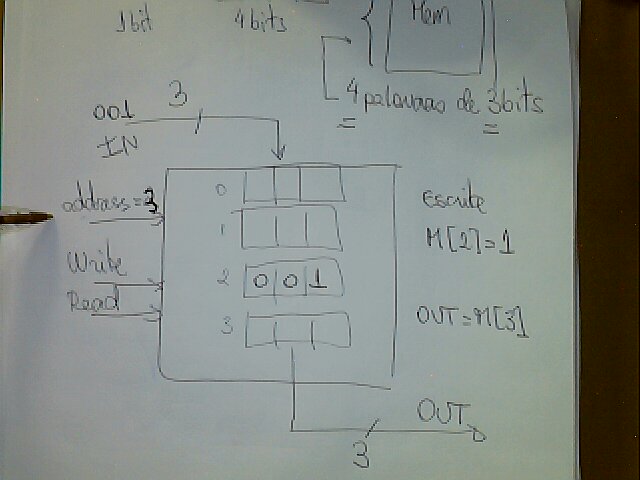 1bit 4bits
Mem
4 palavras de 3bits
001 3
IN
0
address=3
1
Write
2 0 0 1
Read
3
Escrita
M[2]=1
OUT=M[3]
OUT
3